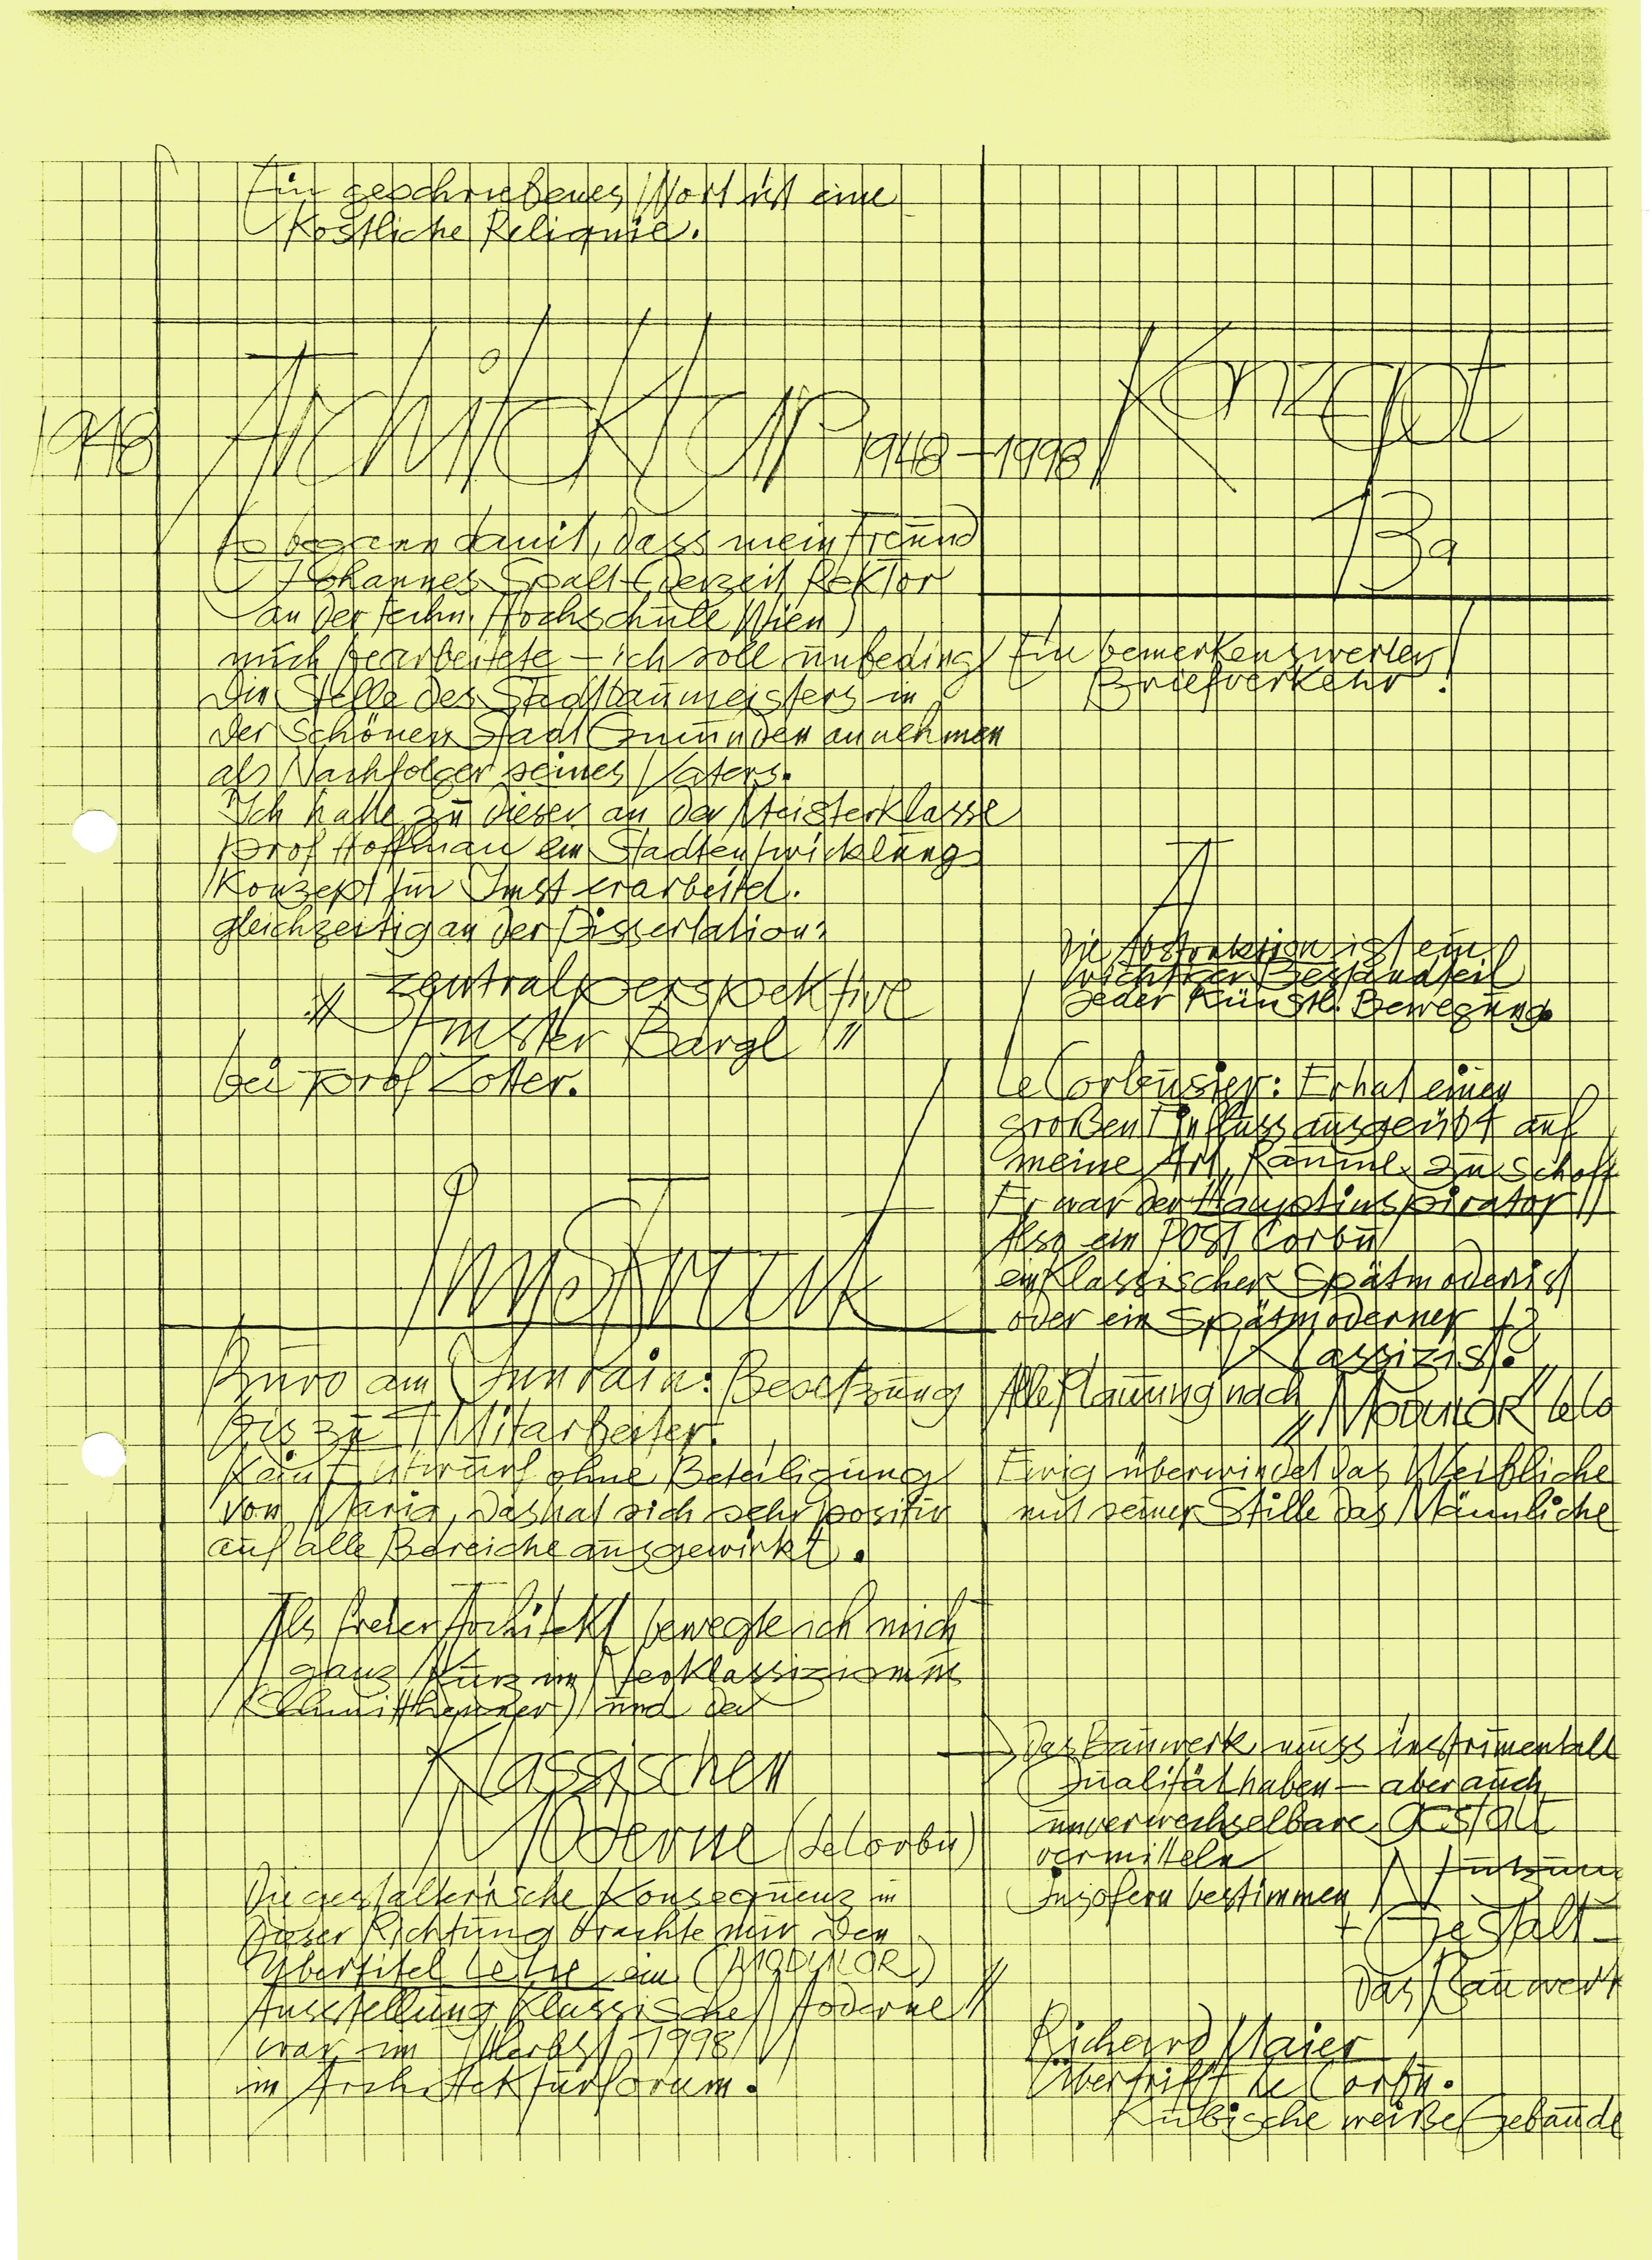 Ein geschriebenes Wort ist eine
Köstliche Reliquie.
1948
Architektur 1948–1998
Konzept
13a
Es begann damit, dass mein Freund
Johannes Spalt (derzeit Rektor
an der techn. Hochschule Wien)
mich bearbeitete – ich soll unbedingt
die Stelle des Stadtbaumeisters in
der schönen Stadt Gmunden annehmen
als Nachfolger seines Vaters.
Ich hatte zu dieser an der Meisterklasse
prof Hoffman ein Stadtentwicklungs
Konzept für Imst erarbeitet.
gleichzeitig an der Dissertation:
„Zentralperspektive
Imster Bargl"
bei prof Zotter.
Büro am Innrain: Besetzung
bis zu 7 Mitarbeiter.
Kein Entwurf ohne Beteiligung
von Maria, das hat sich sehr positiv
auf alle Bereiche ausgewirkt.
Als freier Architekt bewegte ich mich
ganz kurz im Neoklassizismus
(Schmitthenner) und der
Klassischen
Moderne (LeCorbu)
Die gestalterische Konsequenz in
dieser Richtung brachte mir den
Übertitel ein (MODULOR)
Ausstellung Klassische Moderne"
war im Herbst 1998
im Architekturforum.
Ein bemerkenswerter
Briefverkehr!
Die Abstraktion ist ein
wichtiger Bestandteil
jeder Künstl. Bewegung.
Le Corbusier: Er hat einen
großen Einfluss ausgeübt auf
meine Art, Räume zu schaff
Er war der Hauptinspirator!!
Also ein POST Corbu
ein Klassischer Spätmodernist
oder ein Spätmoderner
Klassizist.?
Alle Planung nach
„MODULOR" LeCo
Ewig überwindet das Weibliche
mit seiner Stille das Männliche
→ Das Bauwerk muss instrumentall
Qualität haben – aber auch
unverwechselbare Gestalt
vermitteln
Insofern bestimmen Nutzun
+ Gestalt –
das Bauwerk
Richard Maier
Übertrifft Le Corbu.
Kubische weiße Gebäude